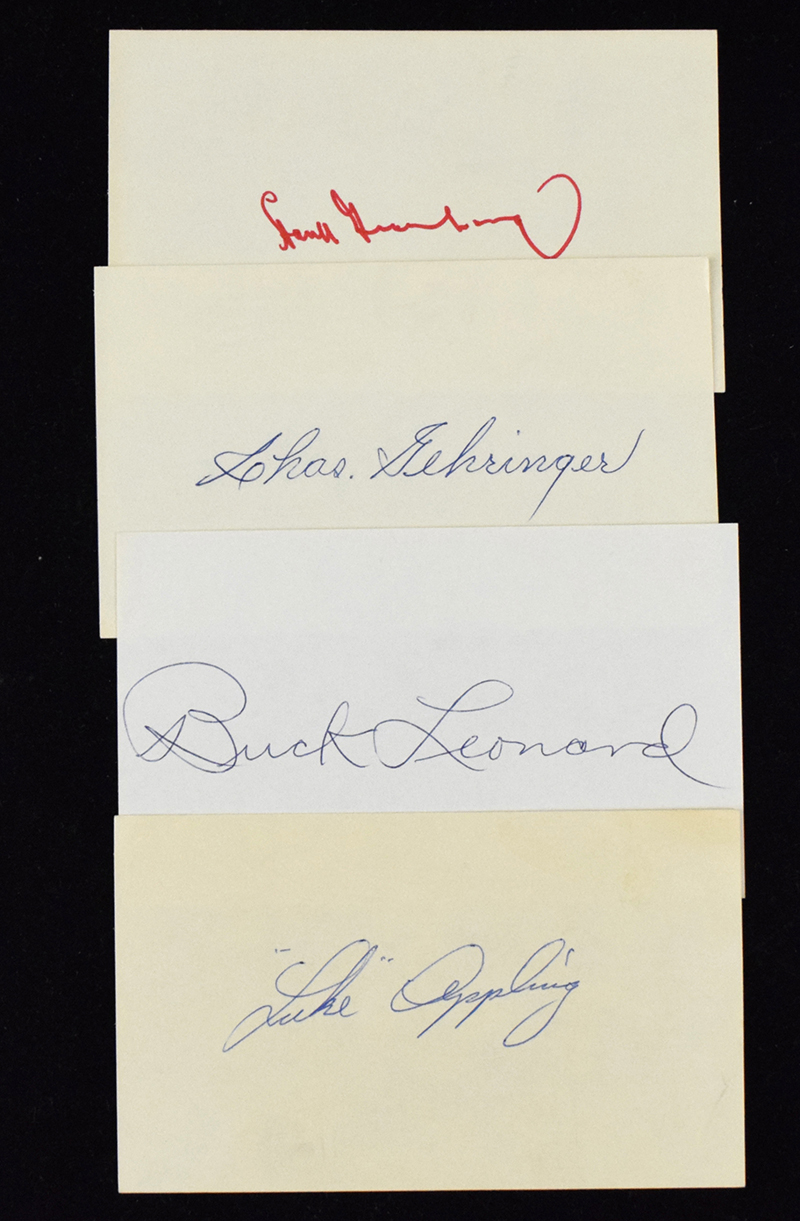 Hank Greenberg
Chas. Gehringer
Buck Leonard
"Luke" Appling